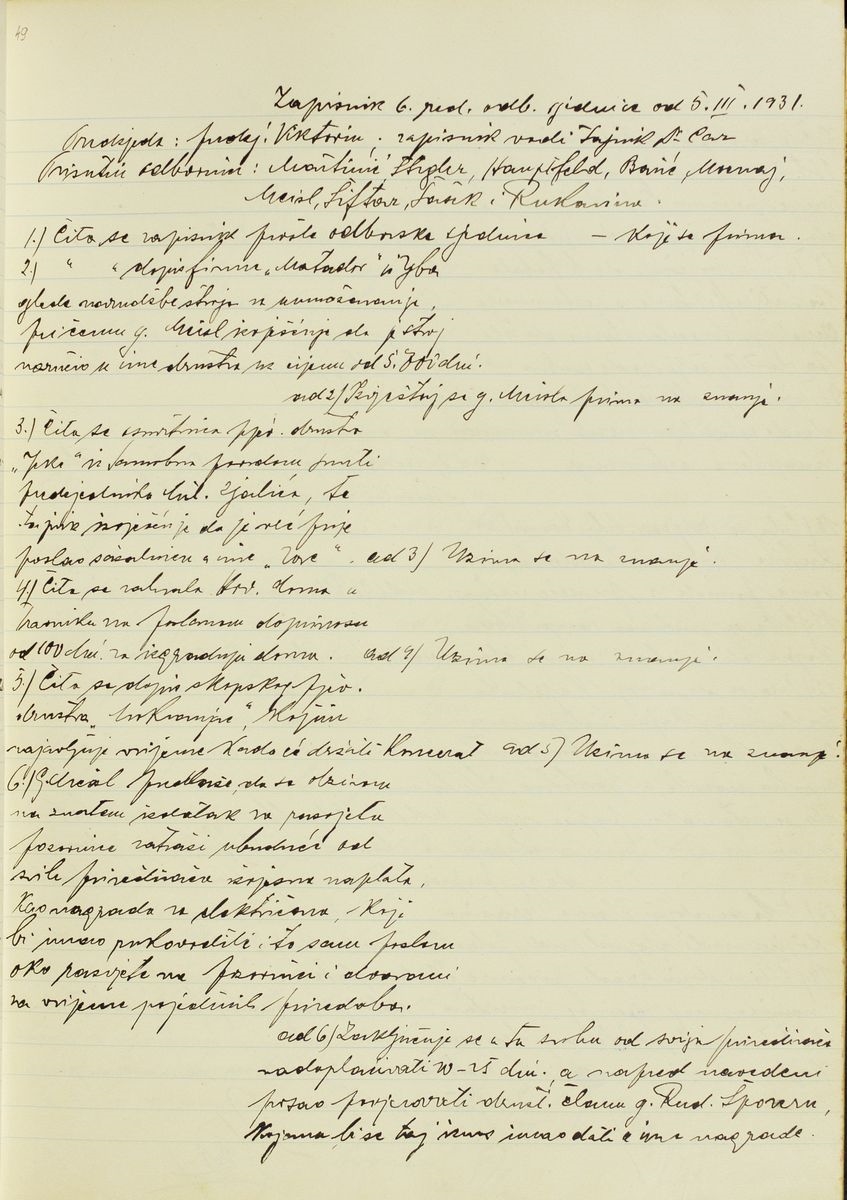 49
Zapisnik 6. red. odb. sjednice od 5. III. 1931.
Predsjeda: predsj. Viktorin, zapisnik vodi tajnik Dr Car
Prisutni odbornici: Martinić, Štigler, Hauptfeld, Banić,
Meisl, Šiftar, i Rukavina.
1.) Čita se zapisnik prošle odborske sjednice – koji se prima.
2.) " " dopis firme „Matador" iz
glede narudžbe stroja za umnožavanje,
pri čemu g. Meisl izvješćuje da je stroj
naručio u ime društva uz cijenu od 5.800 din.
ad 2) Izvještaj se g. Meisla prima na znanje.
3.) Čita se osmrtnica pjev. društva
„Jeka" iz Samobora povodom smrti
predsjednika Mil. te
tajnik izvješćuje da je već prije
poslao sažalnicu u ime „Zore". ad 3) Uzima se na znanje.
4) Čita se zahvala Hrv. doma u
Travniku na poslanom doprinosu
od 100 din. za izgradnju doma. ad 4) Uzima se na znanje.
5.) Čita se dopis skopskog pjev.
društva „Mokranjac", kojim
najavljuje vrijeme kada će držati koncerat ad 5) Uzima se na znanje.
6.) G. Meisl predlaže, da se obzirom
na znatan izdatak za rasvjetu
pozornice zatraži ubuduće od
svih priređivača izvjesna naplata,
kao nagrada za električara, koji
bi imao rukovoditi i to samo poslom
oko rasvjete na pozornici i dvorani
za vrijeme pojedinih priredaba.
ad 6) Zaključuje se u tu svrhu od sviju priređivača
nadoplaćivati 10–25 din., a napred navedeni
posao povjeravati društ. članu g. Rud. Šporeru,
kojemu bi se taj iznos imao dati u ime nagrade.